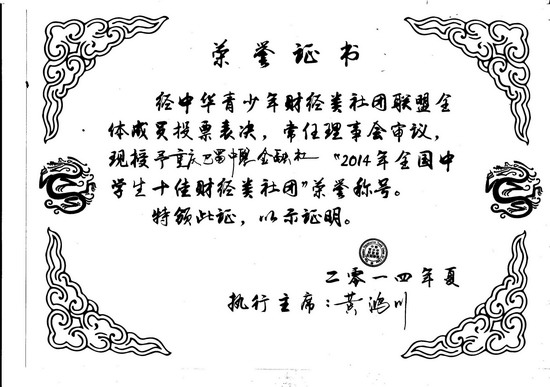 荣誉证书
经中华青少年财经类社团联盟全
体成员投票表决，常任理事会审议，
现授予重庆巴蜀中学金融社“2014年全国中
学生十佳财经类社团”荣誉称号。
特颁此证，以示证明。
二零一四年夏
执行主席：黄鸿川